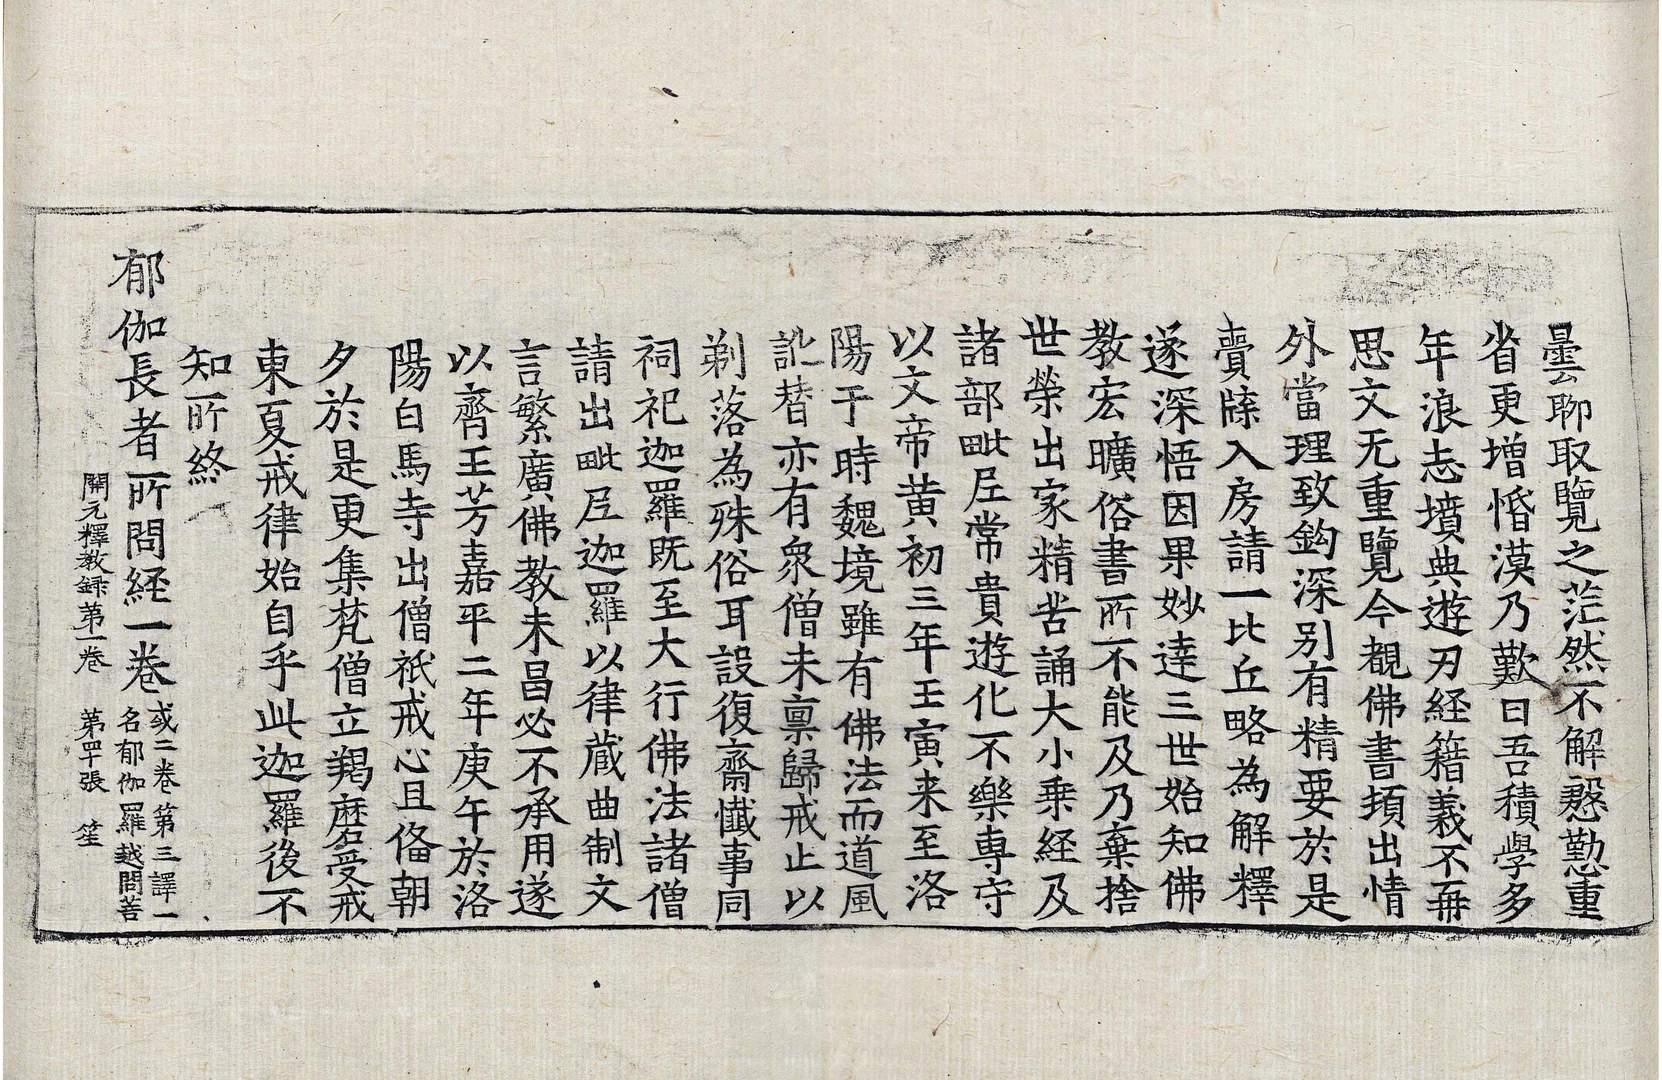 曇聊取覽之茫然不解慇懃重
省更増惛漠乃歎曰吾積學多
年浪志墳典遊刃経籍義不再
思文无重覽今覩佛書頓出情
外當理致鈎深别有精要於是
賣牒入房請一比丘略為解釋
遂深悟因果妙達三世始知佛
教宏曠俗書所不能及乃棄捨
世榮出家精苦誦大小乗経及
諸部毗尼常貴遊化不樂専守
以文帝黄初三年壬寅来至洛
陽于時魏境雖有佛法而道風
訛替亦有衆僧未禀歸戒止以
剃落為殊俗耳設復齋懺事同
祠祀迦羅既至大行佛法諸僧
請出毗尼迦羅以律蔵曲制文
言繁廣佛教未昌必不承用遂
以齊王芳嘉平二年庚午於洛
陽白馬寺出僧祇戒心且俻朝
夕於是更集梵僧立羯磨受戒
東夏戒律始自乎此迦羅後不
知所終
郁伽長者所問経一巻 或二巻第三譯一
名郁伽羅越問菩
開元釋教録第一巻 第四十張 笙